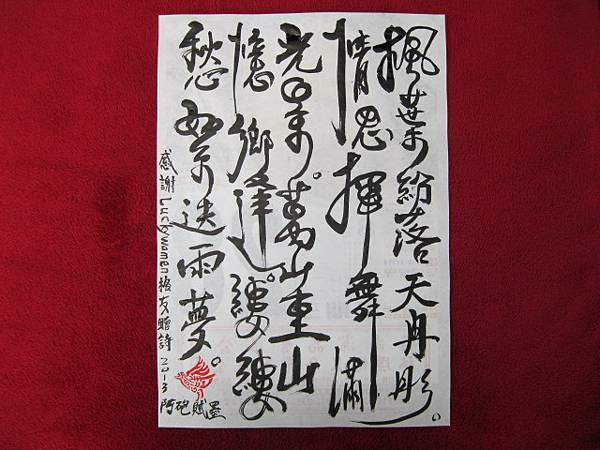 楓葉紛落天丹彤。
情思揮舞滿
光。萬山重山
憶鄉逢。縷縷
愁絮迭雨夢。
感謝Luckywomen格友贈詩2013
阿砲賦墨